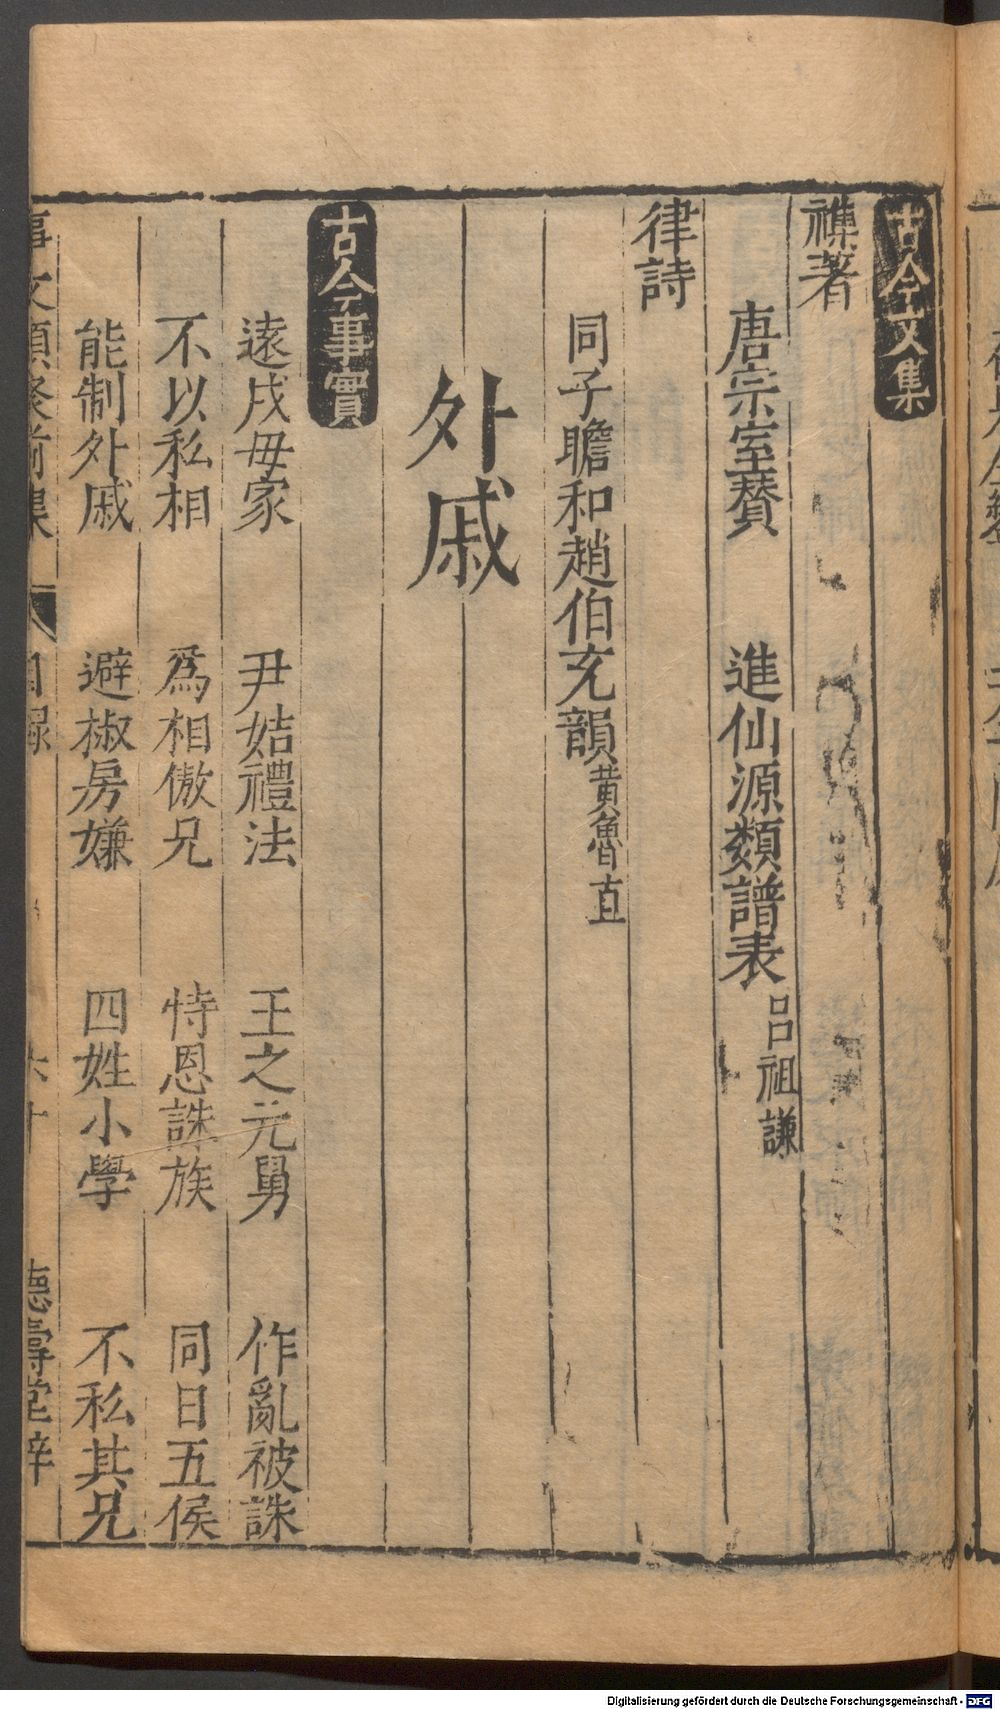 古今文集
襍著
唐宗室贊 進仙源類譜表 呂祖謙
律詩
同子瞻和趙伯充韻 黄魯直
外戚
古今事實
遠戍母家 尹姞禮法 王之元舅 作亂被誅
不以私相 爲相傲兄 恃恩誅族 同日五侯
能制外戚 避椒房嫌 四姓小學 不私其兄
事文類聚前集 目録 六十 德壽堂梓
Digitalisierung gefördert durch die Deutsche Forschungsgemeinschaft - DFG